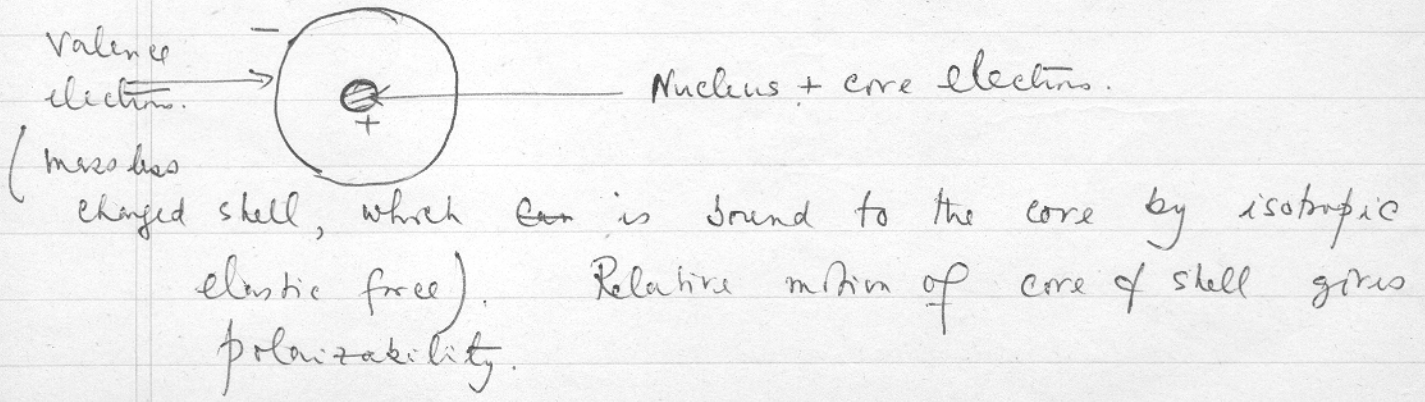 Valence
electrons.
−
+
Nucleus + core electrons.
(massless
charged shell, which is bound to the core by isotropic
elastic force). Relative motion of core & shell gives
polarizability.